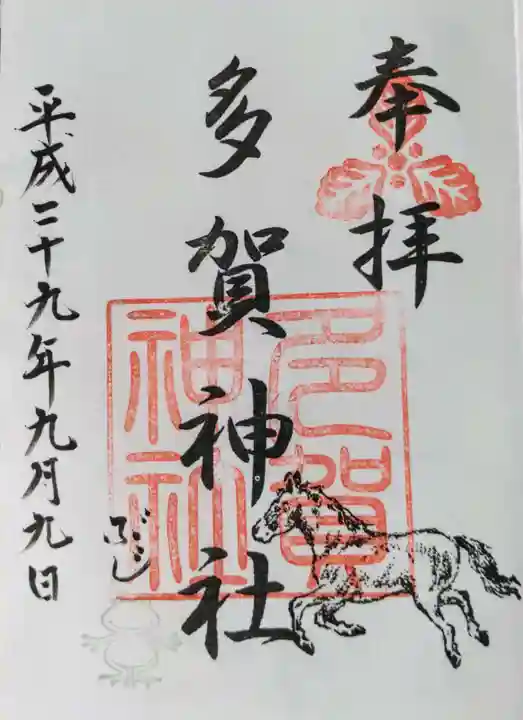 奉拝
多賀神社
多賀
神社
平成二十九年九月九日
ぶじ